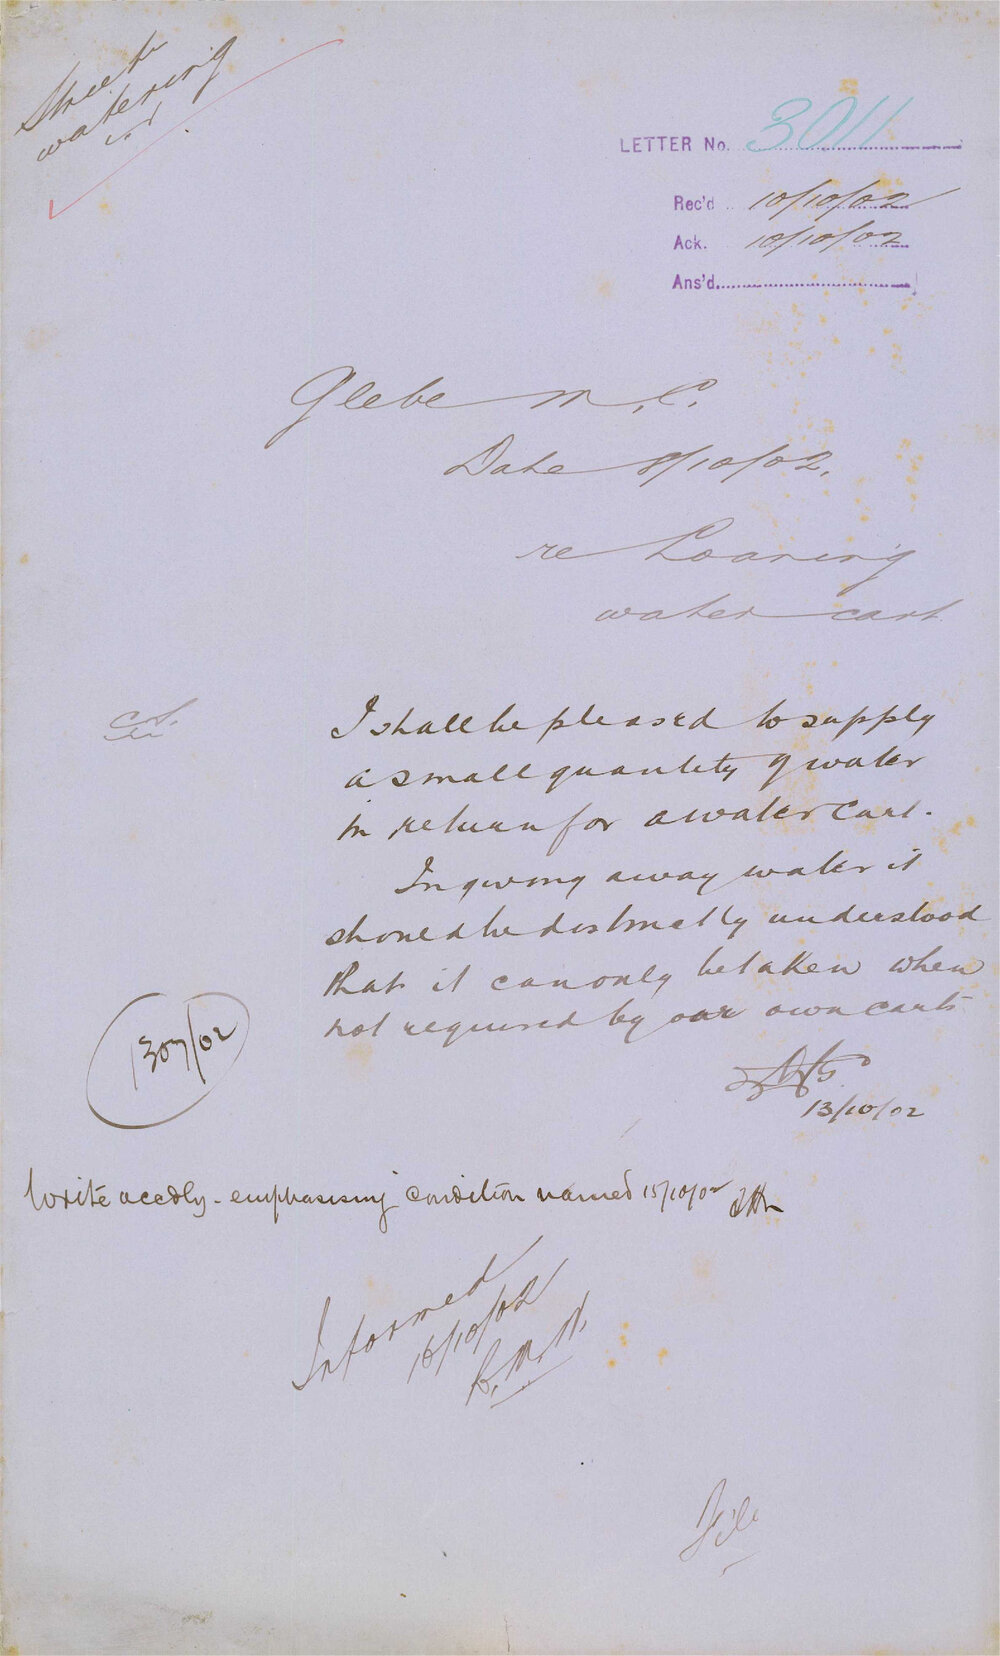 Street
watering
LETTER No. 3011
Rec'd 10/10/02
Ack. 10/10/02
Ans'd.
Glebe M.C.
Date 8/10/02.
re Loaning
water cart
I shall be pleased to supply
a small quantity of water
in return for a water cart.
In giving away water it
should be distinctly understood
that it can only be taken when
not required by our own carts
13/10/02
1307/02
Write accdly - emphasising condition named 15/10/02
Informed
16/10/02
File